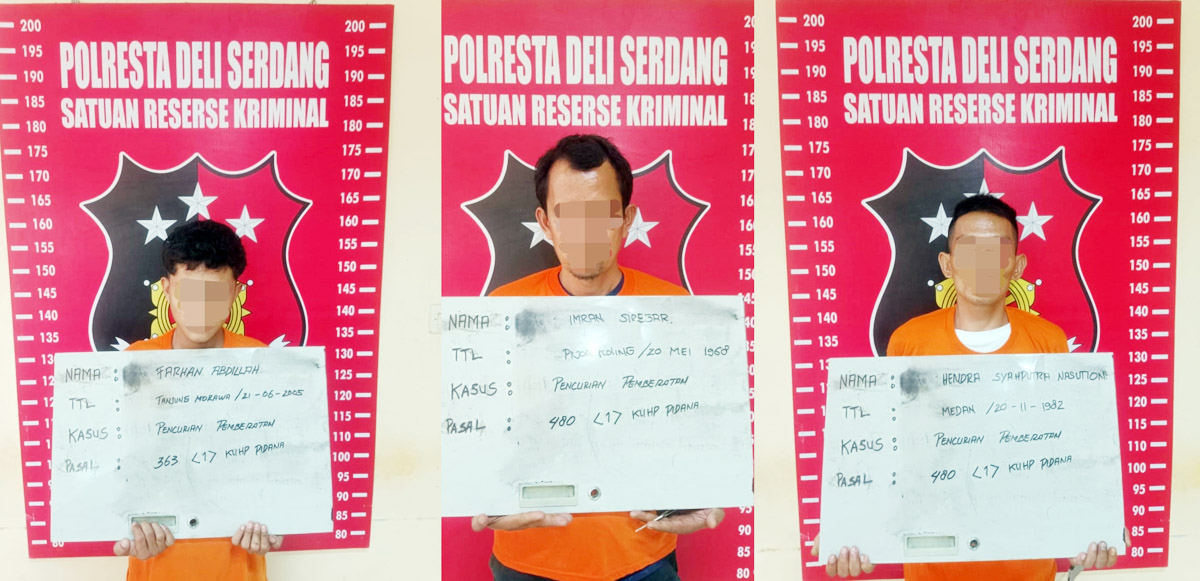 POLRESTA DELI SERDANG
SATUAN RESERSE KRIMINAL
NAMA : FARHAN ABDILLAH.
TTL : TANJUNG MORAWA / 21-06-2005
KASUS : PENCURIAN PEMBERATAN
PASAL : 363 <1> KUHP PIDANA
200
195
190
185
180
175
170
165
160
155
150
145
140
135
130
125
120
115
110
105
100
95
90
85
80
POLRESTA DELI SERDANG
SATUAN RESERSE KRIMINAL
NAMA : IMRAN SIREGAR.
TTL : / 20 MEI 1968
KASUS : PENCURIAN PEMBERATAN
PASAL : 480 <1> KUHP PIDANA
POLRESTA DELI SERDANG
SATUAN RESERSE KRIMINAL
NAMA : HENDRA SYAHPUTRA NASUTION
TTL : MEDAN / 20-11-1982
KASUS : PENCURIAN PEMBERATAN
PASAL : 480 <1> KUHP PIDANA
200
195
190
185
180
175
170
165
160
155
150
145
140
135
130
125
120
115
110
105
100
95
90
85
80